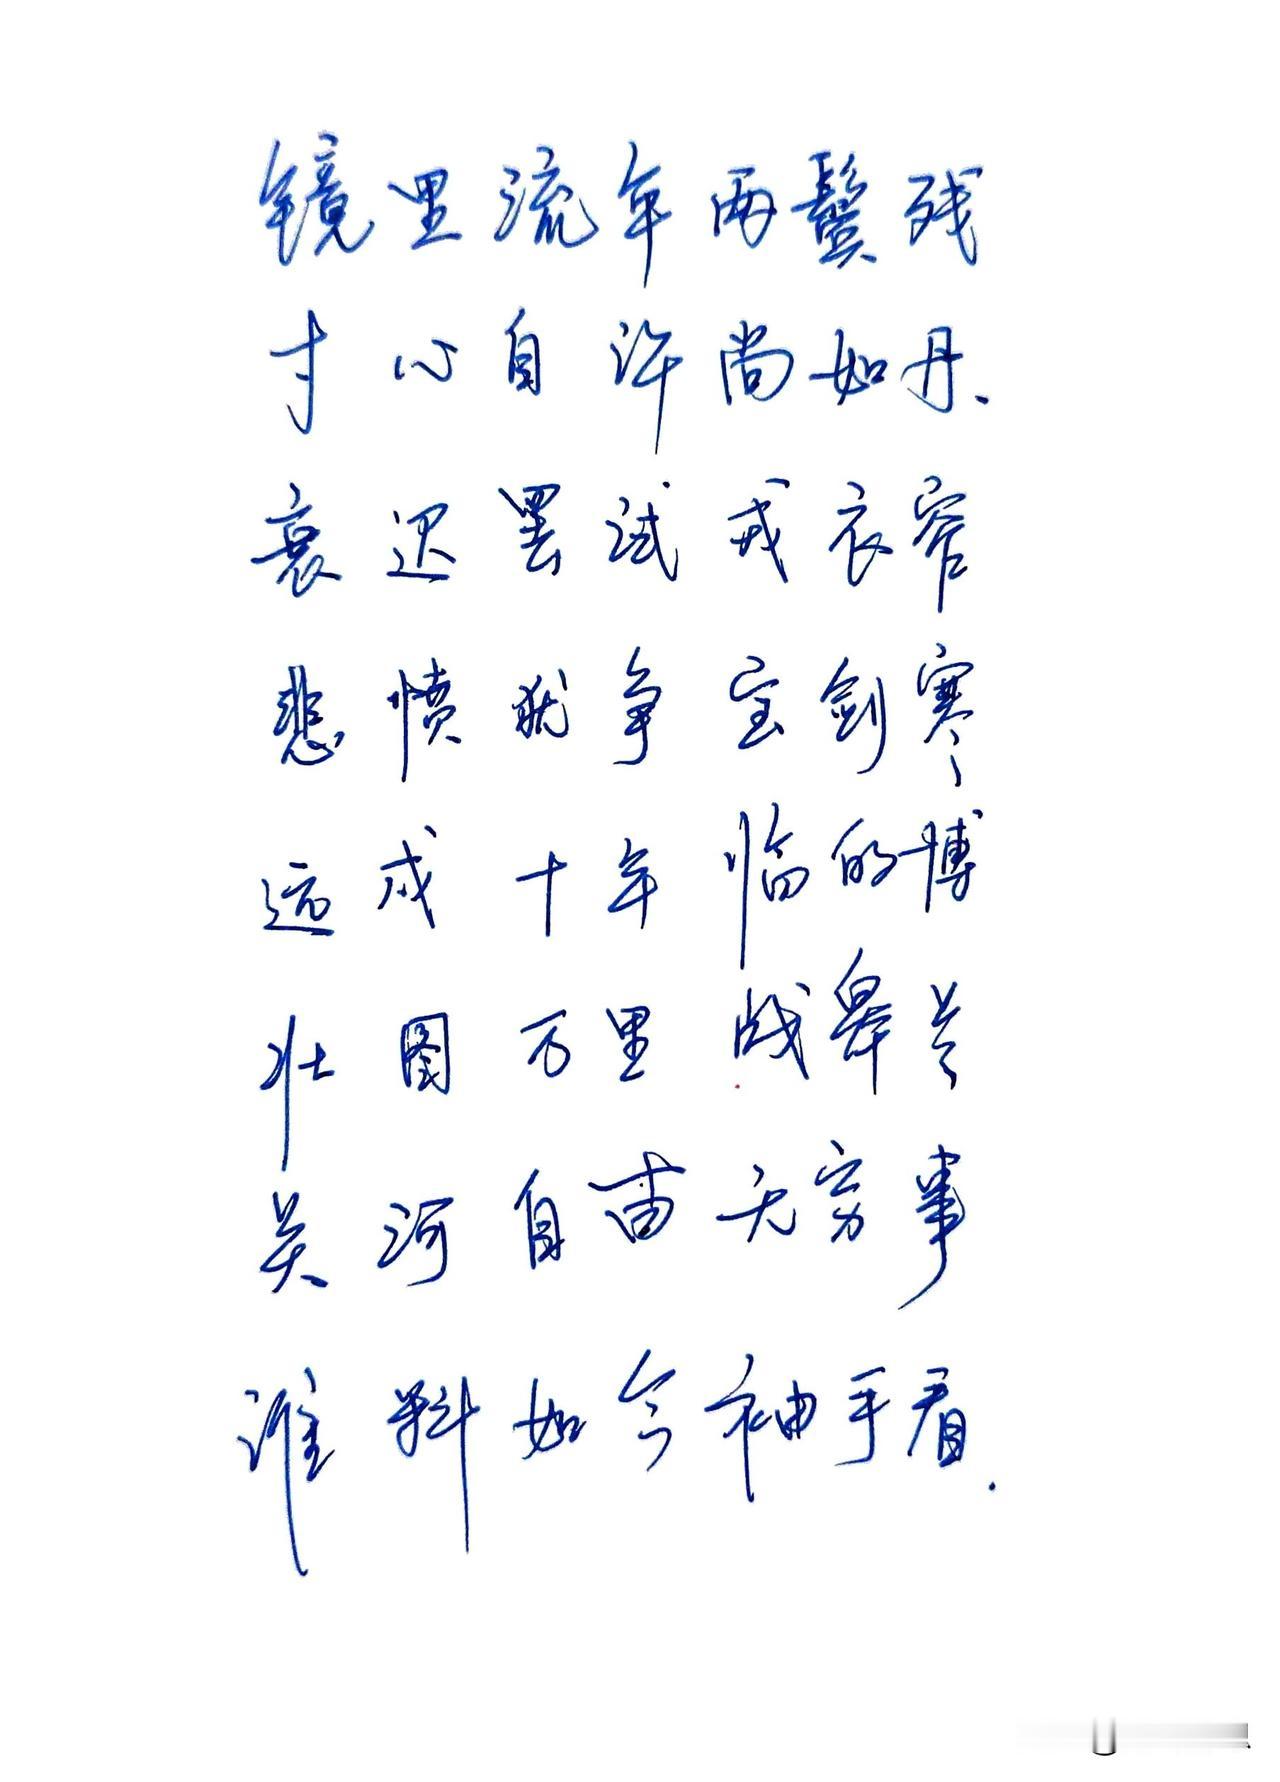 镜里流年两鬓残
寸心自许尚如丹.
衰迟罢试戎衣窄
悲愤犹争宝剑寒
远戍十年临的博
壮图万里战皋兰
关河自古无穷事
谁料如今袖手看.